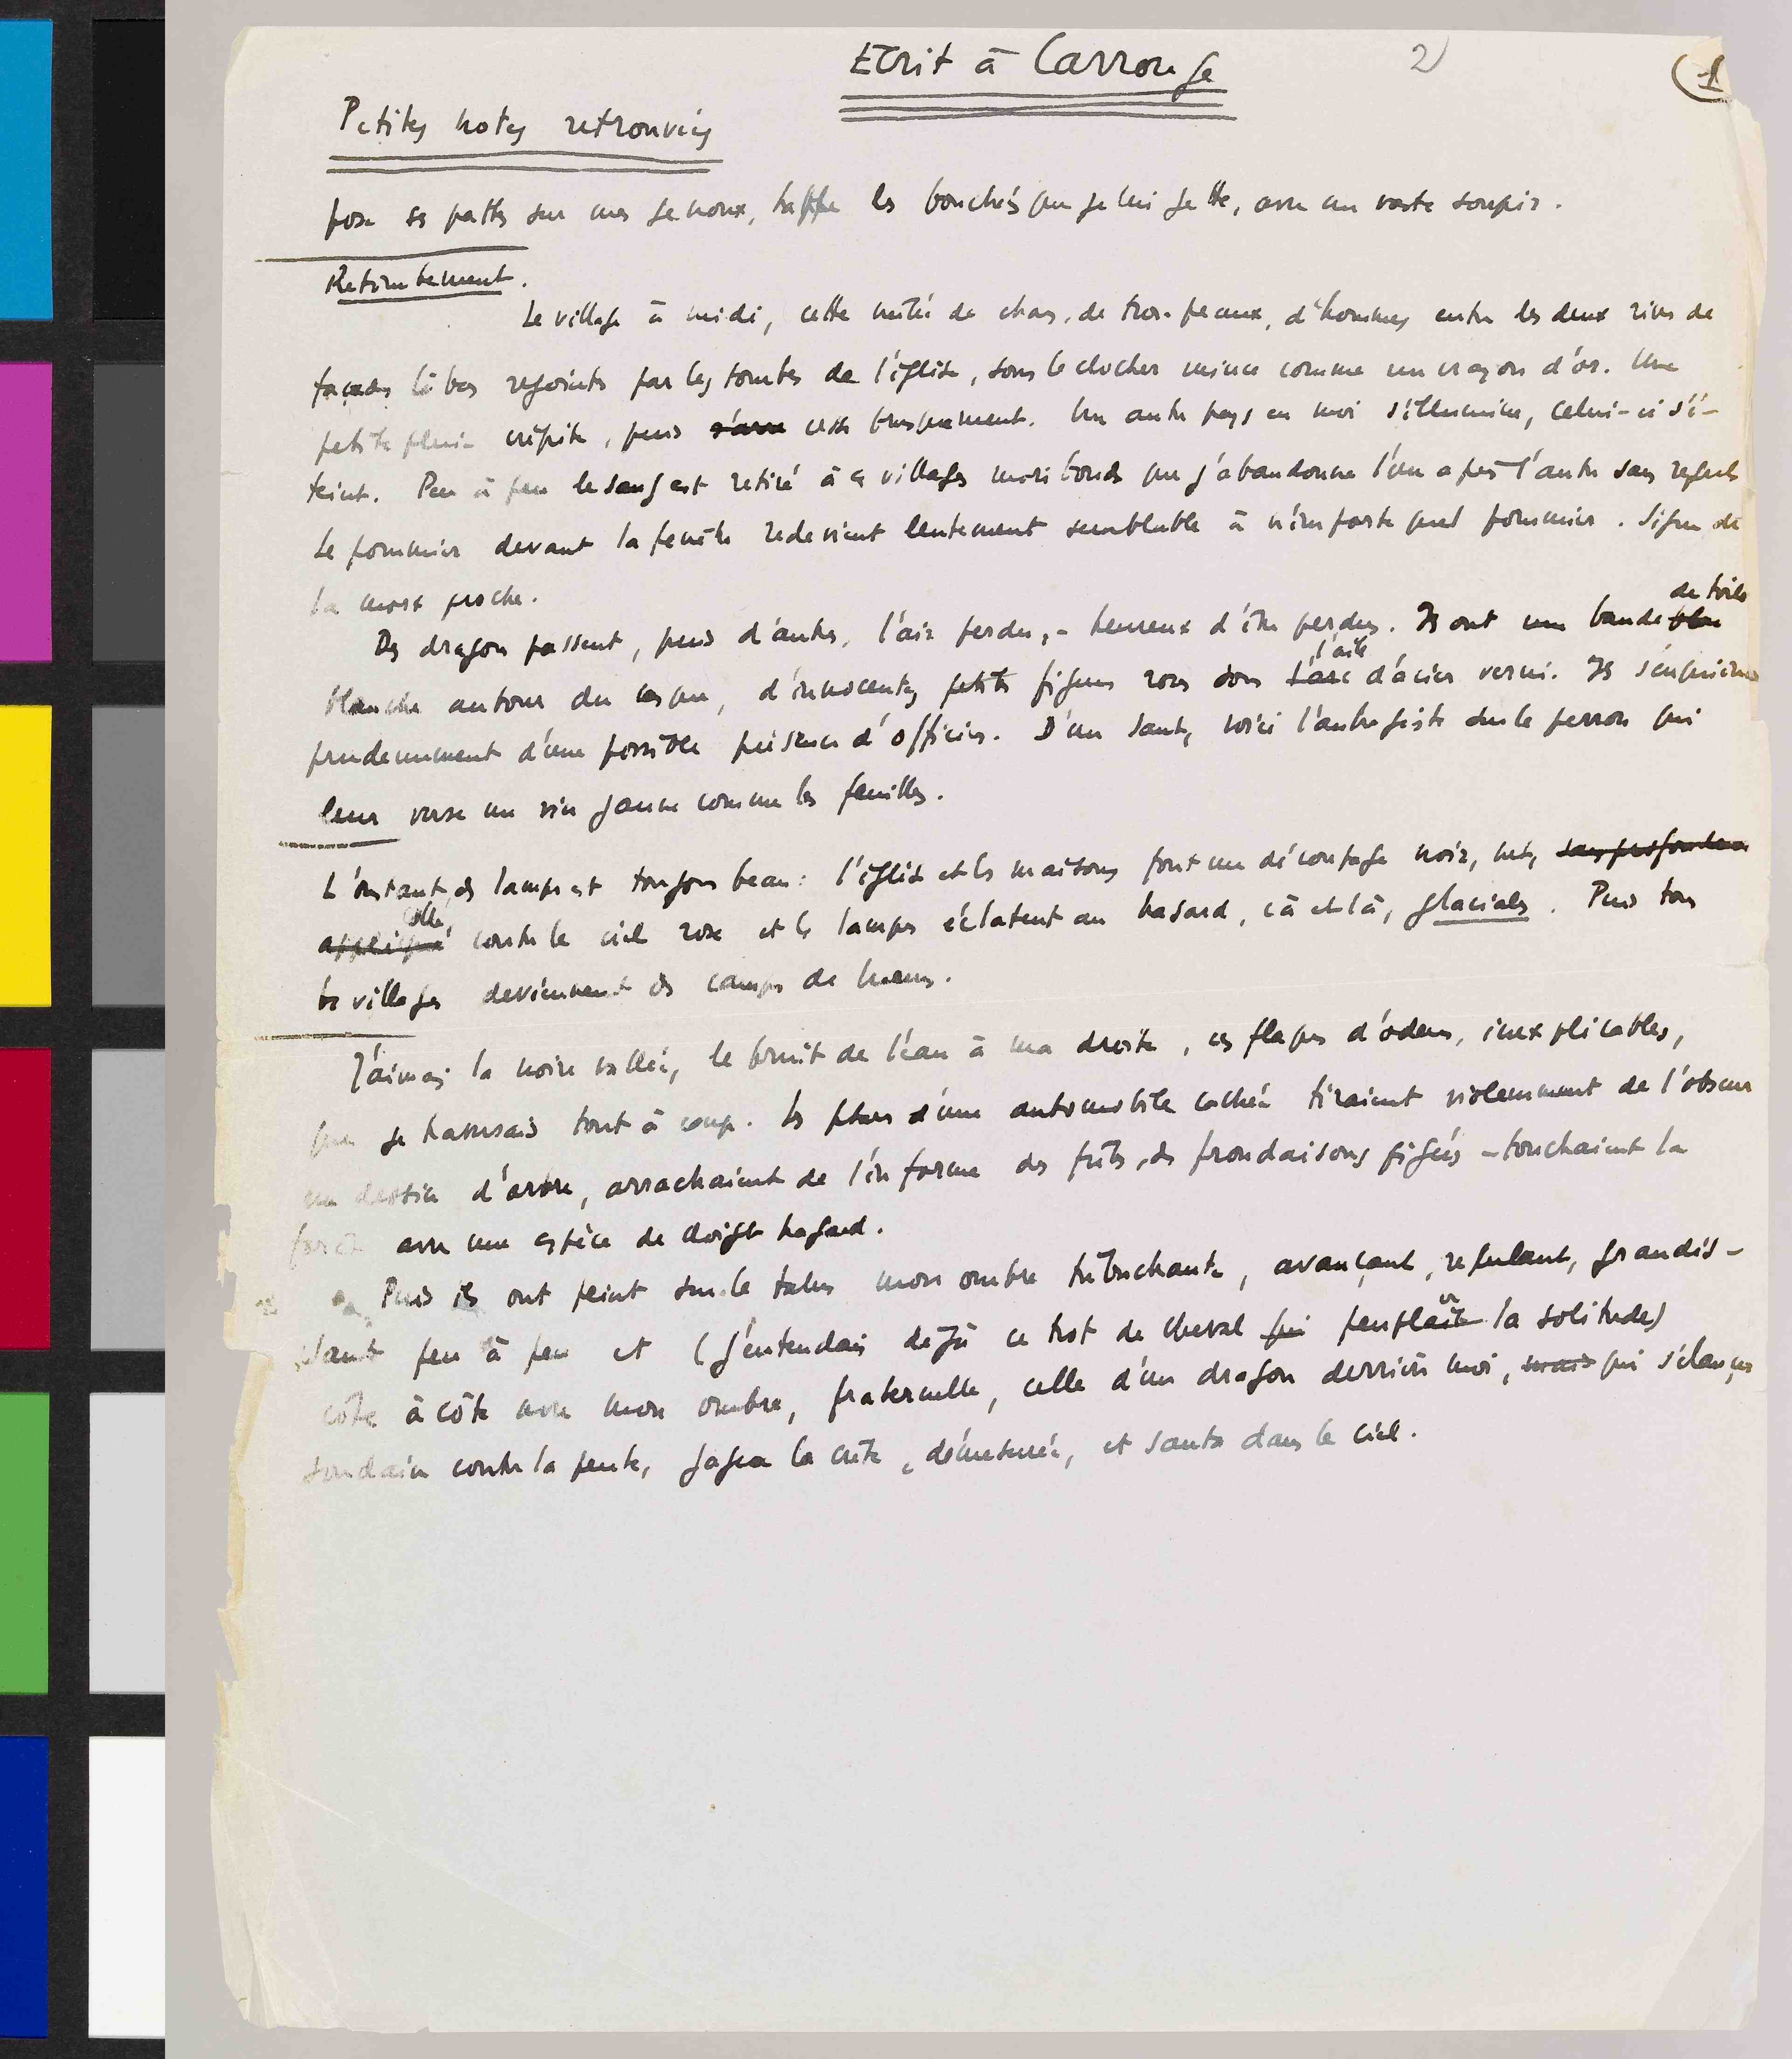 Ecrit à Carrouge
2)
1
Petites notes retrouvées
pose ses pattes sur mes genoux, happe les bouchées que je lui jette, avec un vaste soupir.
Retombement.
Le village à midi, cette mêlée de chars, de troupeaux, d'hommes entre les deux rives de
façades là-bas rejointes par les tombes de l'église, sous le clocher mince comme un crayon d'or. Une
petite pluie crépite, puis cesse brusquement. Un autre pays en moi s'illumine, celui-ci s'é-
teint. Peu à peu le sang est retiré à ces villages moribonds que j'abandonne l'un après l'autre sans regrets
Le pommier devant la fenêtre redevient lentement semblable à n'importe quel pommier. Signe de
la mort proche.
Des dragons passent, puis d'autres, l'air perdu, - heureux d'être perdus. Ils ont une bande de toile
blanche autour du casque, d'innocentes petites figures roses sous l'aile d'acier verni. Ils s'enquièrent
prudemment d'une possible présence d'officiers. D'un saut, voici l'aubergiste sur le perron qui
leur verse un vin jaune comme les feuilles.
L'instant des lampes est toujours beau : l'église et les maisons font un découpage noir, net, sans profondeur
appliqué collé contre le ciel rose et les lampes éclatent au hasard, çà et là, glaciales. Puis tous
les villages deviennent des camps de lueurs.
J'aimais la noire vallée, le bruit de l'eau à ma droite, ces flaques d'odeur, inexplicables,
que je traversais tout à coup. Les phares d'une automobile cachée tiraient violemment de l'obscur
un destin d'arbre, arrachaient de l'informe des fûts, des frondaisons figées - touchaient la
forêt avec une espèce de doigt hagard.
Puis ils ont peint sur le talus mon ombre trébuchante, avançant, reculant, grandis-
sant peu à peu et (j'entendais déjà ce trot de cheval qui peuplait la solitude)
côte à côte avec mon ombre, fraternelle, celle d'un dragon derrière moi, mais qui s'élança
soudain contre la pente, gagna la crête, démesurée, et sauta dans le ciel.